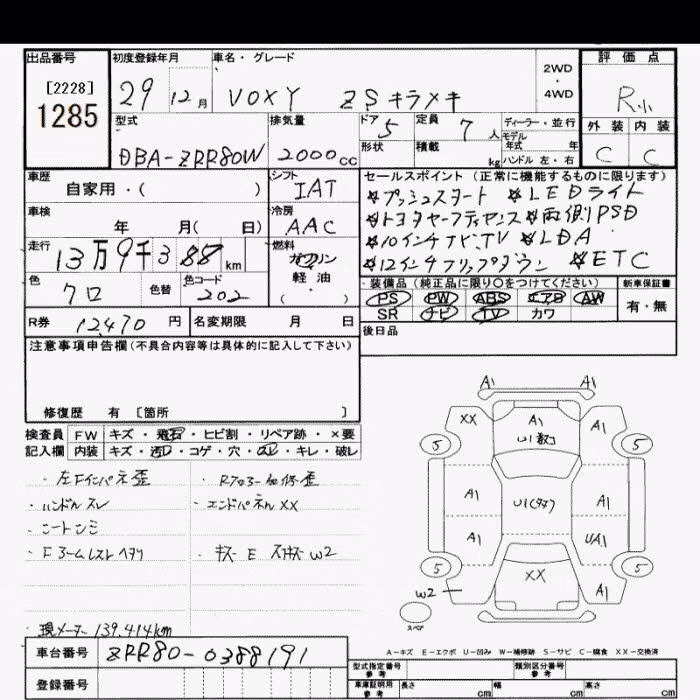 出品番号
[2228]
1285
初度登録年月
29 12 月
車名・グレード
VOXY ZSキラメキ
2WD
・
4WD
評価点
R小
外装 内装
C C
型式
DBA-ZRR80W
排気量
2000cc
ドア 5
定員 7 人
形状
積載 kg
ディーラー・並行
モデル年式 年
ハンドル 左・右
車歴
自家用・( )
シフト
IAT
車検
年 月( 日)
冷房
AAC
走行
13万9千388km
燃料
ガソリン
軽油
( )
色
クロ
色替
色コード
202
R券 12,470 円
名変期限 月 日
セールスポイント(正常に機能するものに限ります)
☆プッシュスタート ☆LEDライト
☆トヨタセーフティセンス ☆両側PSD
☆10インチナビTV ☆LDA
☆12インチフリップダウン ☆ETC
装備品(純正品に限り○をつけてください)
PS PW ABS エアB AW
SR ナビ TV カワ
新車保証書
有・無
後日品
注意事項申告欄(不具合内容等は具体的に記入して下さい)
修復歴 有 〔箇所 〕
検査員
記入欄
FW キズ・飛石・ヒビ割・リペア跡・×要
内装 キズ・汚レ・コゲ・穴・スレ・キレ・破レ
・左Fインパネ歪
・ハンドルスレ
・シートシミ
・Fアームレストヘタリ
・Rフロアー 修歪
・エンドパネルXX
・キズ E W2
・現メーター139,414km
A1 A1
XX A1 A1
U1数コ
5 5
A1 U1(タタ) A1
A1 UA1
5 5
W2 XX A1
スペア
A-キズ E-エクボ U-凹み W-補修跡 S-サビ C-腐食 XX-交換済
車台番号 ZRR80-0388191
登録番号
型式指定番号
参考
類別区分番号
参考
車庫証明用
参考
長さ cm 幅 cm 高さ cm